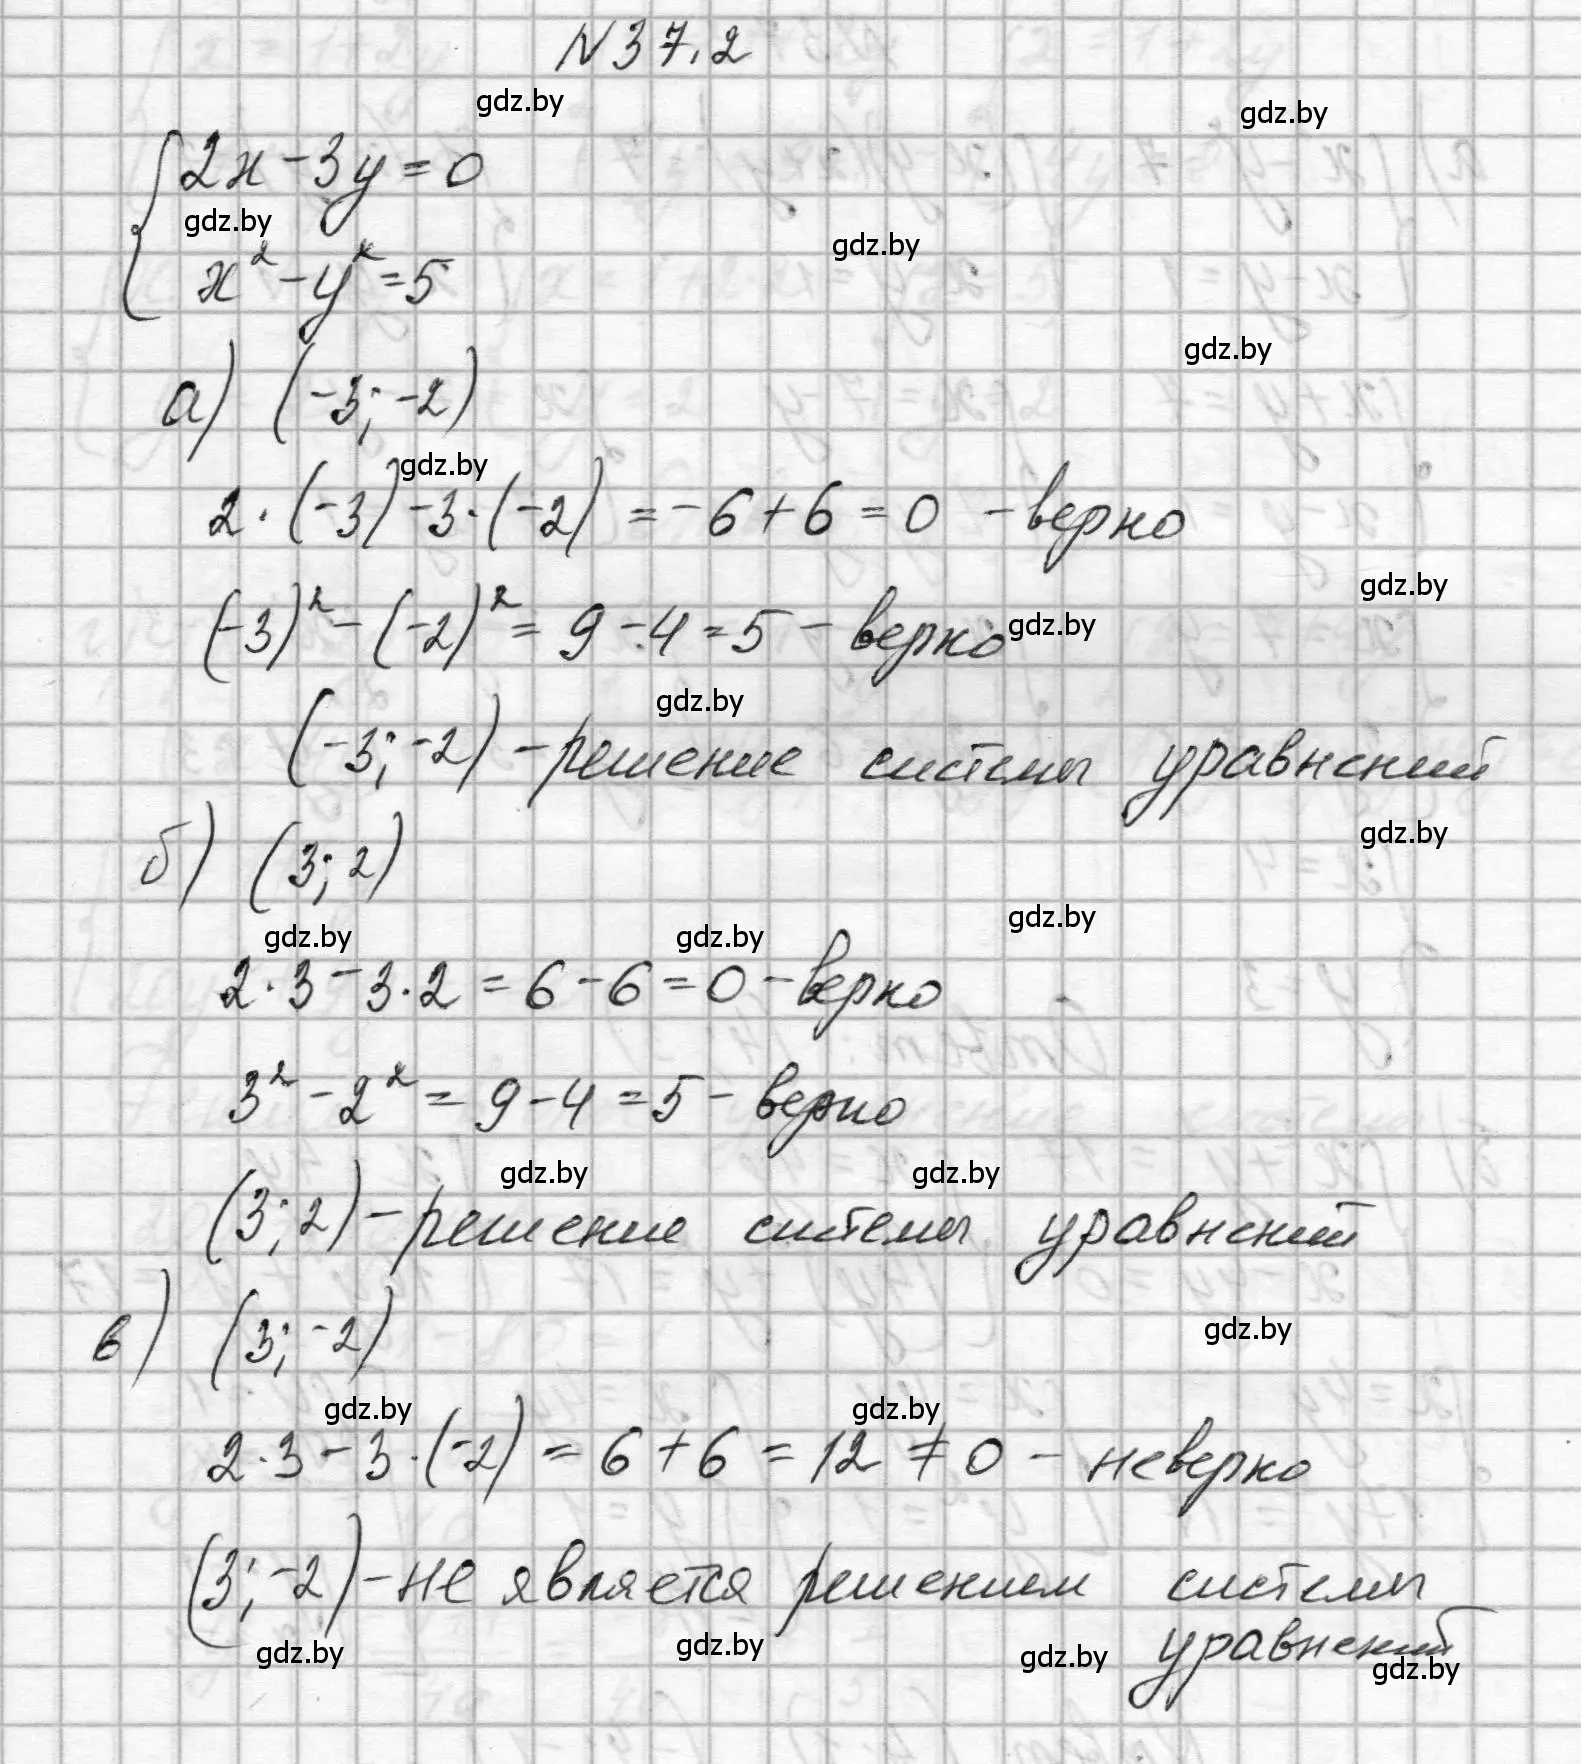 N 37.2
gdz.by
gdz.by
2x - 3y = 0
gdz.by
gdz.by
x² - y² = 5
gdz.by
а) (-3; -2)
gdz.by
2·(-3) - 3·(-2) = -6 + 6 = 0 - верно
gdz.by
(-3)² - (-2)² = 9 - 4 = 5 - верно
gdz.by
gdz.by
(-3; -2) - решение системы уравнений
gdz.by
б) (3; 2)
gdz.by
gdz.by
gdz.by
2·3 - 3·2 = 6 - 6 = 0 - верно
3² - 2² = 9 - 4 = 5 - верно
gdz.by
gdz.by
(3; 2) - решение системы уравнений
gdz.by
в) (3; -2)
gdz.by
gdz.by
2·3 - 3·(-2) = 6 + 6 = 12 ≠ 0 - неверно
(3; -2) - не является решением системы
уравнений
gdz.by
gdz.by
gdz.by
gdz.by